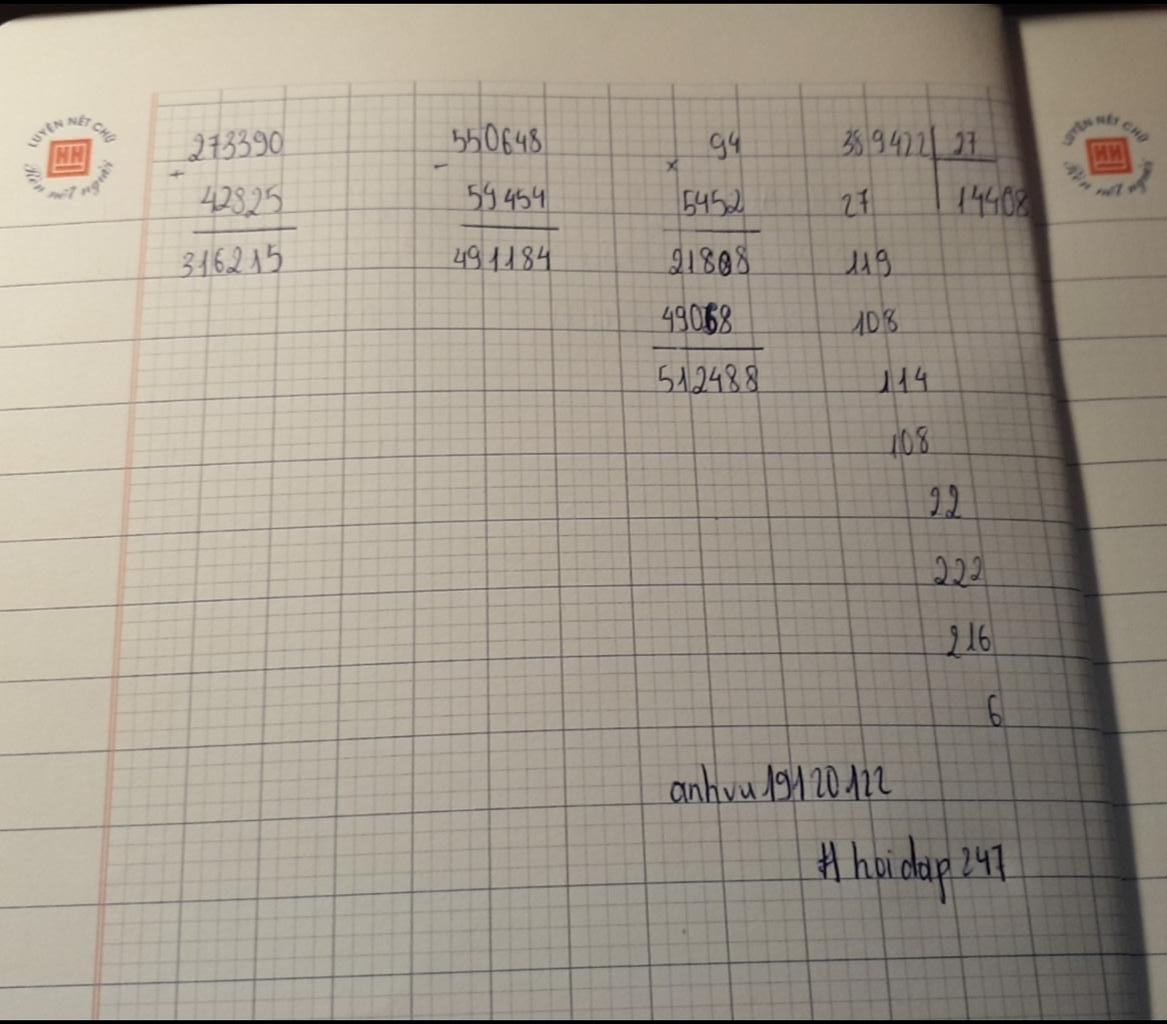 LUYỆN NÉT CHỮ
HH
Rèn nết người
273390
+
42825
316215
550648
-
59454
491184
94
×
5452
21808
49068
512488
389422 27
27 14408
119
108
114
108
22
222
216
6
anhvu19120122
#hoidap247
LUYỆN NÉT CHỮ
HH
Rèn nết người